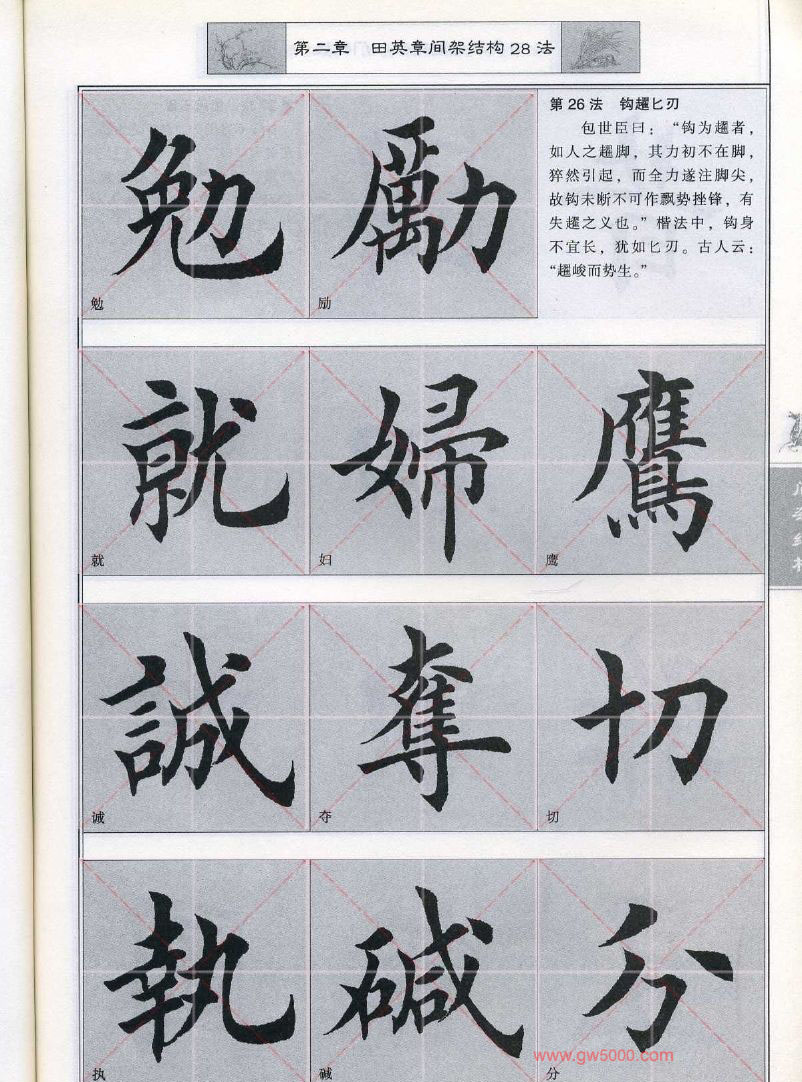 第二章 田英章间架结构28法
勉 勵
勉 励
第26法 钩趯匕刃
包世臣曰：“钩为趯者，
如人之趯脚，其力初不在脚，
猝然引起，而全力遂注脚尖，
故钩未断不可作飘势挫锋，有
失趯之义也。”楷法中，钩身
不宜长，犹如匕刃。古人云：
“趯峻而势生。”
就 婦 鷹
就 妇 鹰
誠 奪 切
诚 夺 切
執 碱 分
执 碱 分
www.gw5000.com